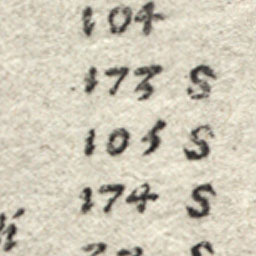 104
173 S
105 S
174 S